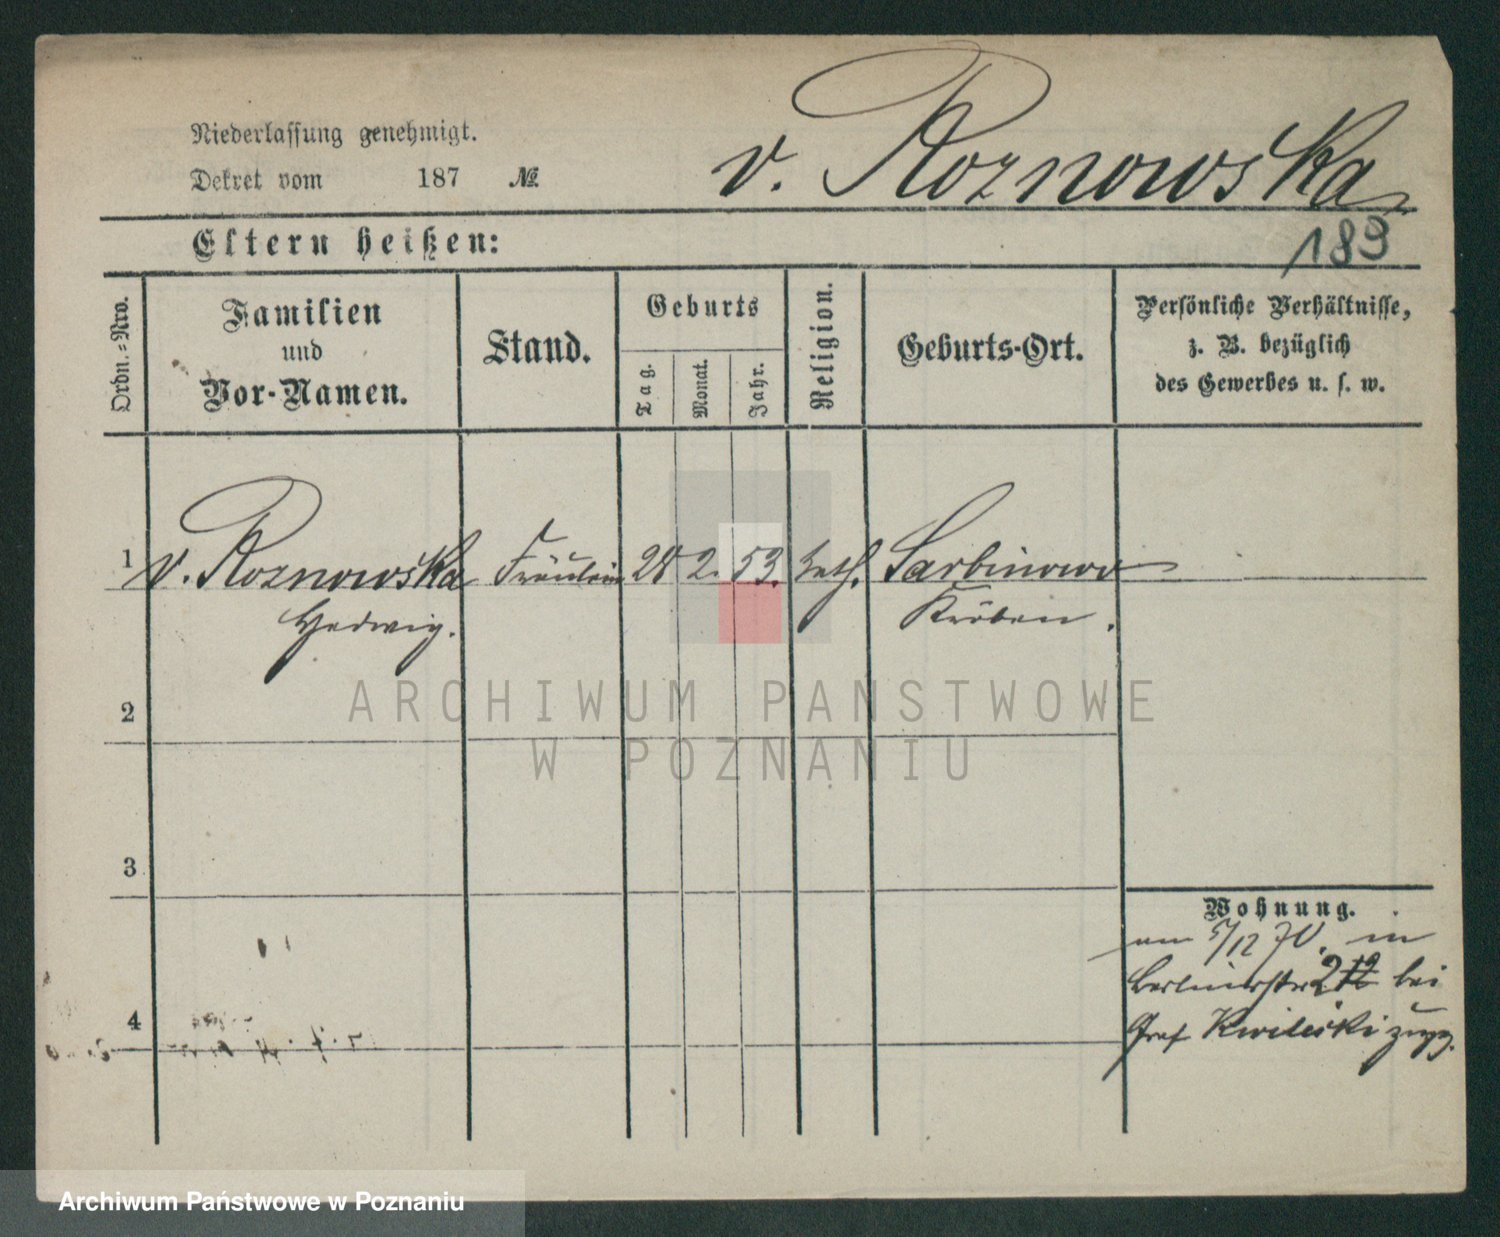 Niederlassung genehmigt.
Dekret vom 187 №
v. Roznowska
Eltern heißen:
189
Ordn.-Nro.
Familien
und
Vor-Namen.
Stand.
Geburts
Tag.
Monat.
Jahr.
Religion.
Geburts-Ort.
Persönliche Verhältnisse,
z. B. bezüglich
des Gewerbes u. s. w.
1 v. Roznowska Fräulein 28 2. 53. kath. Sarbinowo
Hedwig. Kröben.
2
ARCHIWUM PANSTWOWE
W POZNANIU
3
Wohnung.
am 5/12 70. in
Berlinerstr bei
4
Graf Kwilecki zugz.
Archiwum Państwowe w Poznaniu